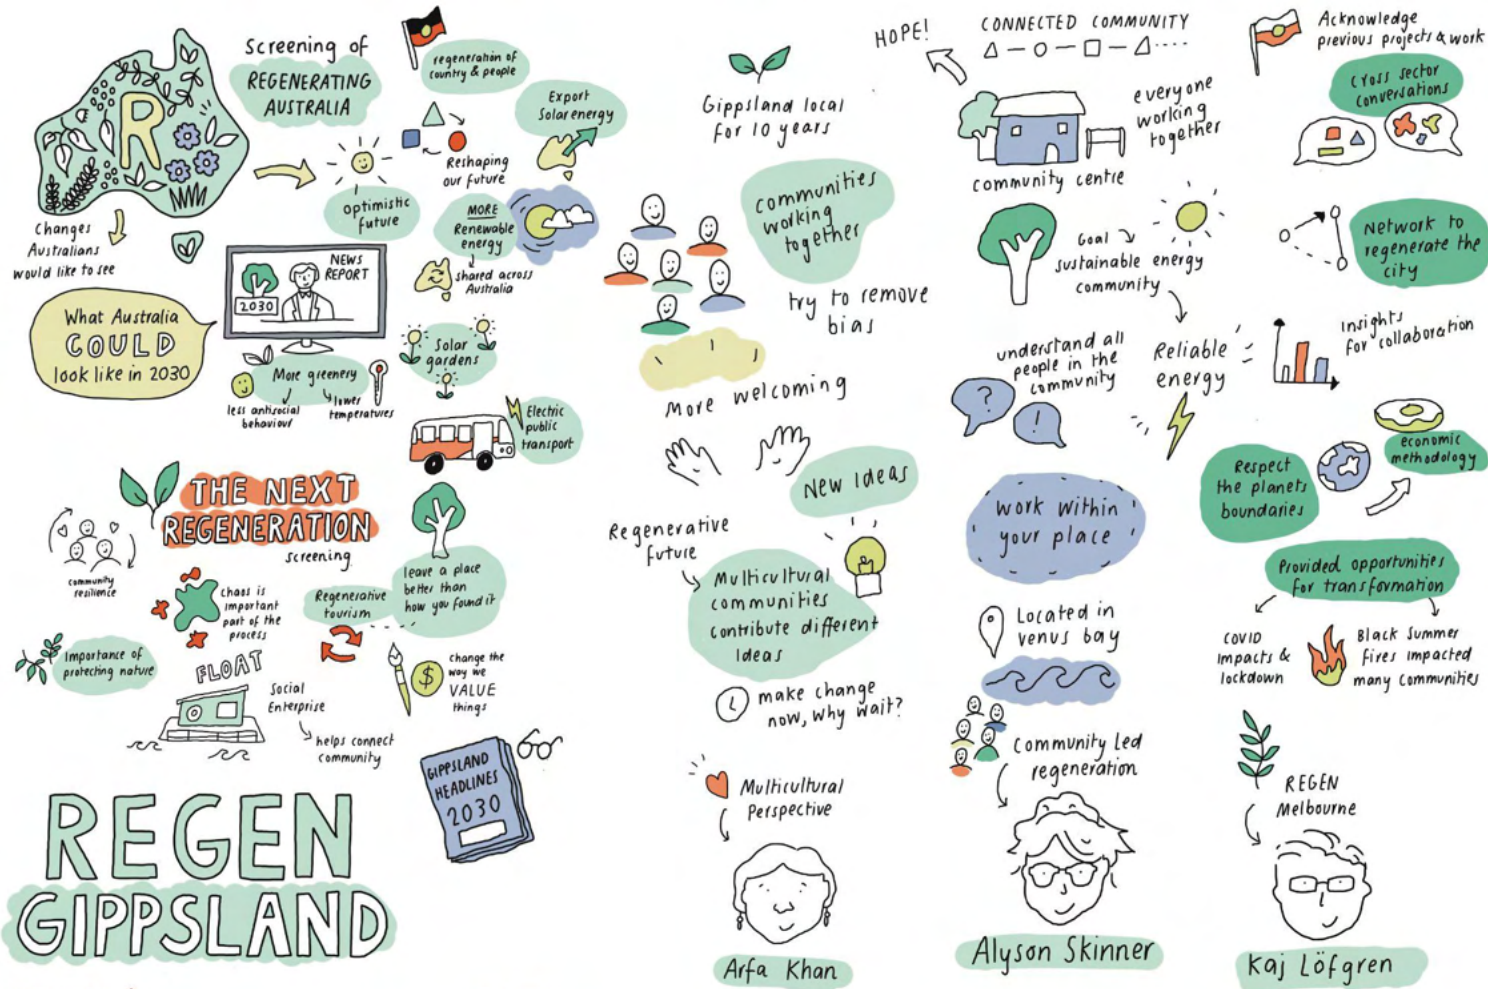 Screening of
REGENERATING
AUSTRALIA
R
Changes
Australians
would like to see
What Australia
COULD
look like in 2030
NEWS
REPORT
2030
optimistic
future
regeneration of
country & people
Reshaping
our future
Export
Solar energy
MORE
Renewable
energy
shared across
Australia
Solar
gardens
More greenery
less antisocial
behaviour
lower
temperatures
Electric
public
transport
THE NEXT
REGENERATION
screening
community
resilience
chaos is
important
part of the
process
Regenerative
tourism
leave a place
better than
how you found it
Importance of
protecting nature
FLOAT
Social
Enterprise
helps connect
community
$
change the
way we
VALUE
things
GIPPSLAND
HEADLINES
2030
REGEN
GIPPSLAND
Gippsland local
for 10 years
communities
working
together
try to remove
bias
More welcoming
New Ideas
Regenerative
future
Multicultural
communities
contribute different
Ideas
make change
now, why wait?
Multicultural
Perspective
Arfa Khan
HOPE!
CONNECTED COMMUNITY
everyone
working
together
community centre
Goal
sustainable energy
community
understand all
people in the
community
?
!
Reliable
energy
work within
your place
Located in
venus bay
Community Led
regeneration
Alyson Skinner
Acknowledge
previous projects & work
Cross sector
conversations
Network to
regenerate the
city
Insights
for collaboration
economic
methodology
Respect
the planets
boundaries
Provided opportunities
for transformation
COVID
Impacts &
lockdown
Black Summer
fires impacted
many communities
REGEN
Melbourne
Kaj Löfgren